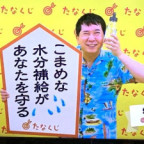 たなくじ
こまめな
水分補給が
あなたを守る
たなくじ
たなくじ